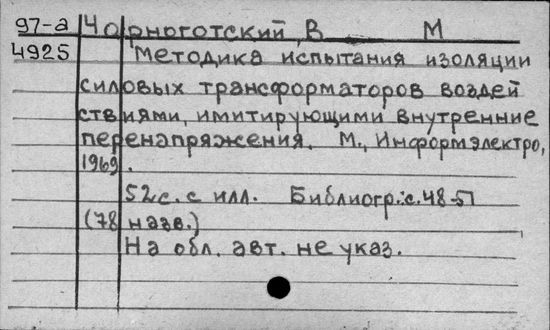 97-а Чорноготский, В М
4925 Методика испытания изоляции
силовых трансформаторов воздей
ствиями, имитирующими внутренние
перенапряжения. М., Информэлектро,
1969.
52с. с илл. Библиогр.: с. 48-51
(78 назв.)
На обл. авт. не указ.